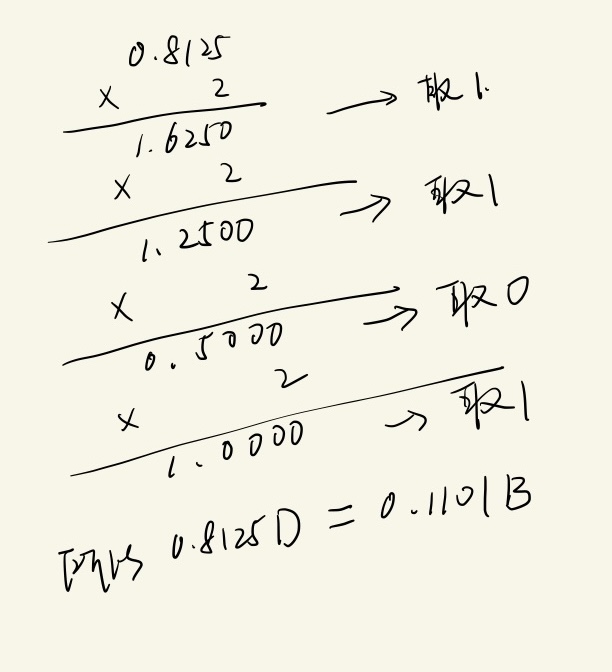 0.8125
× 2 → 取1.
1.6250
× 2
1.2500 → 取1
× 2
0.5000 → 取0
× 2
1.0000 → 取1
所以 0.8125D = 0.1101B